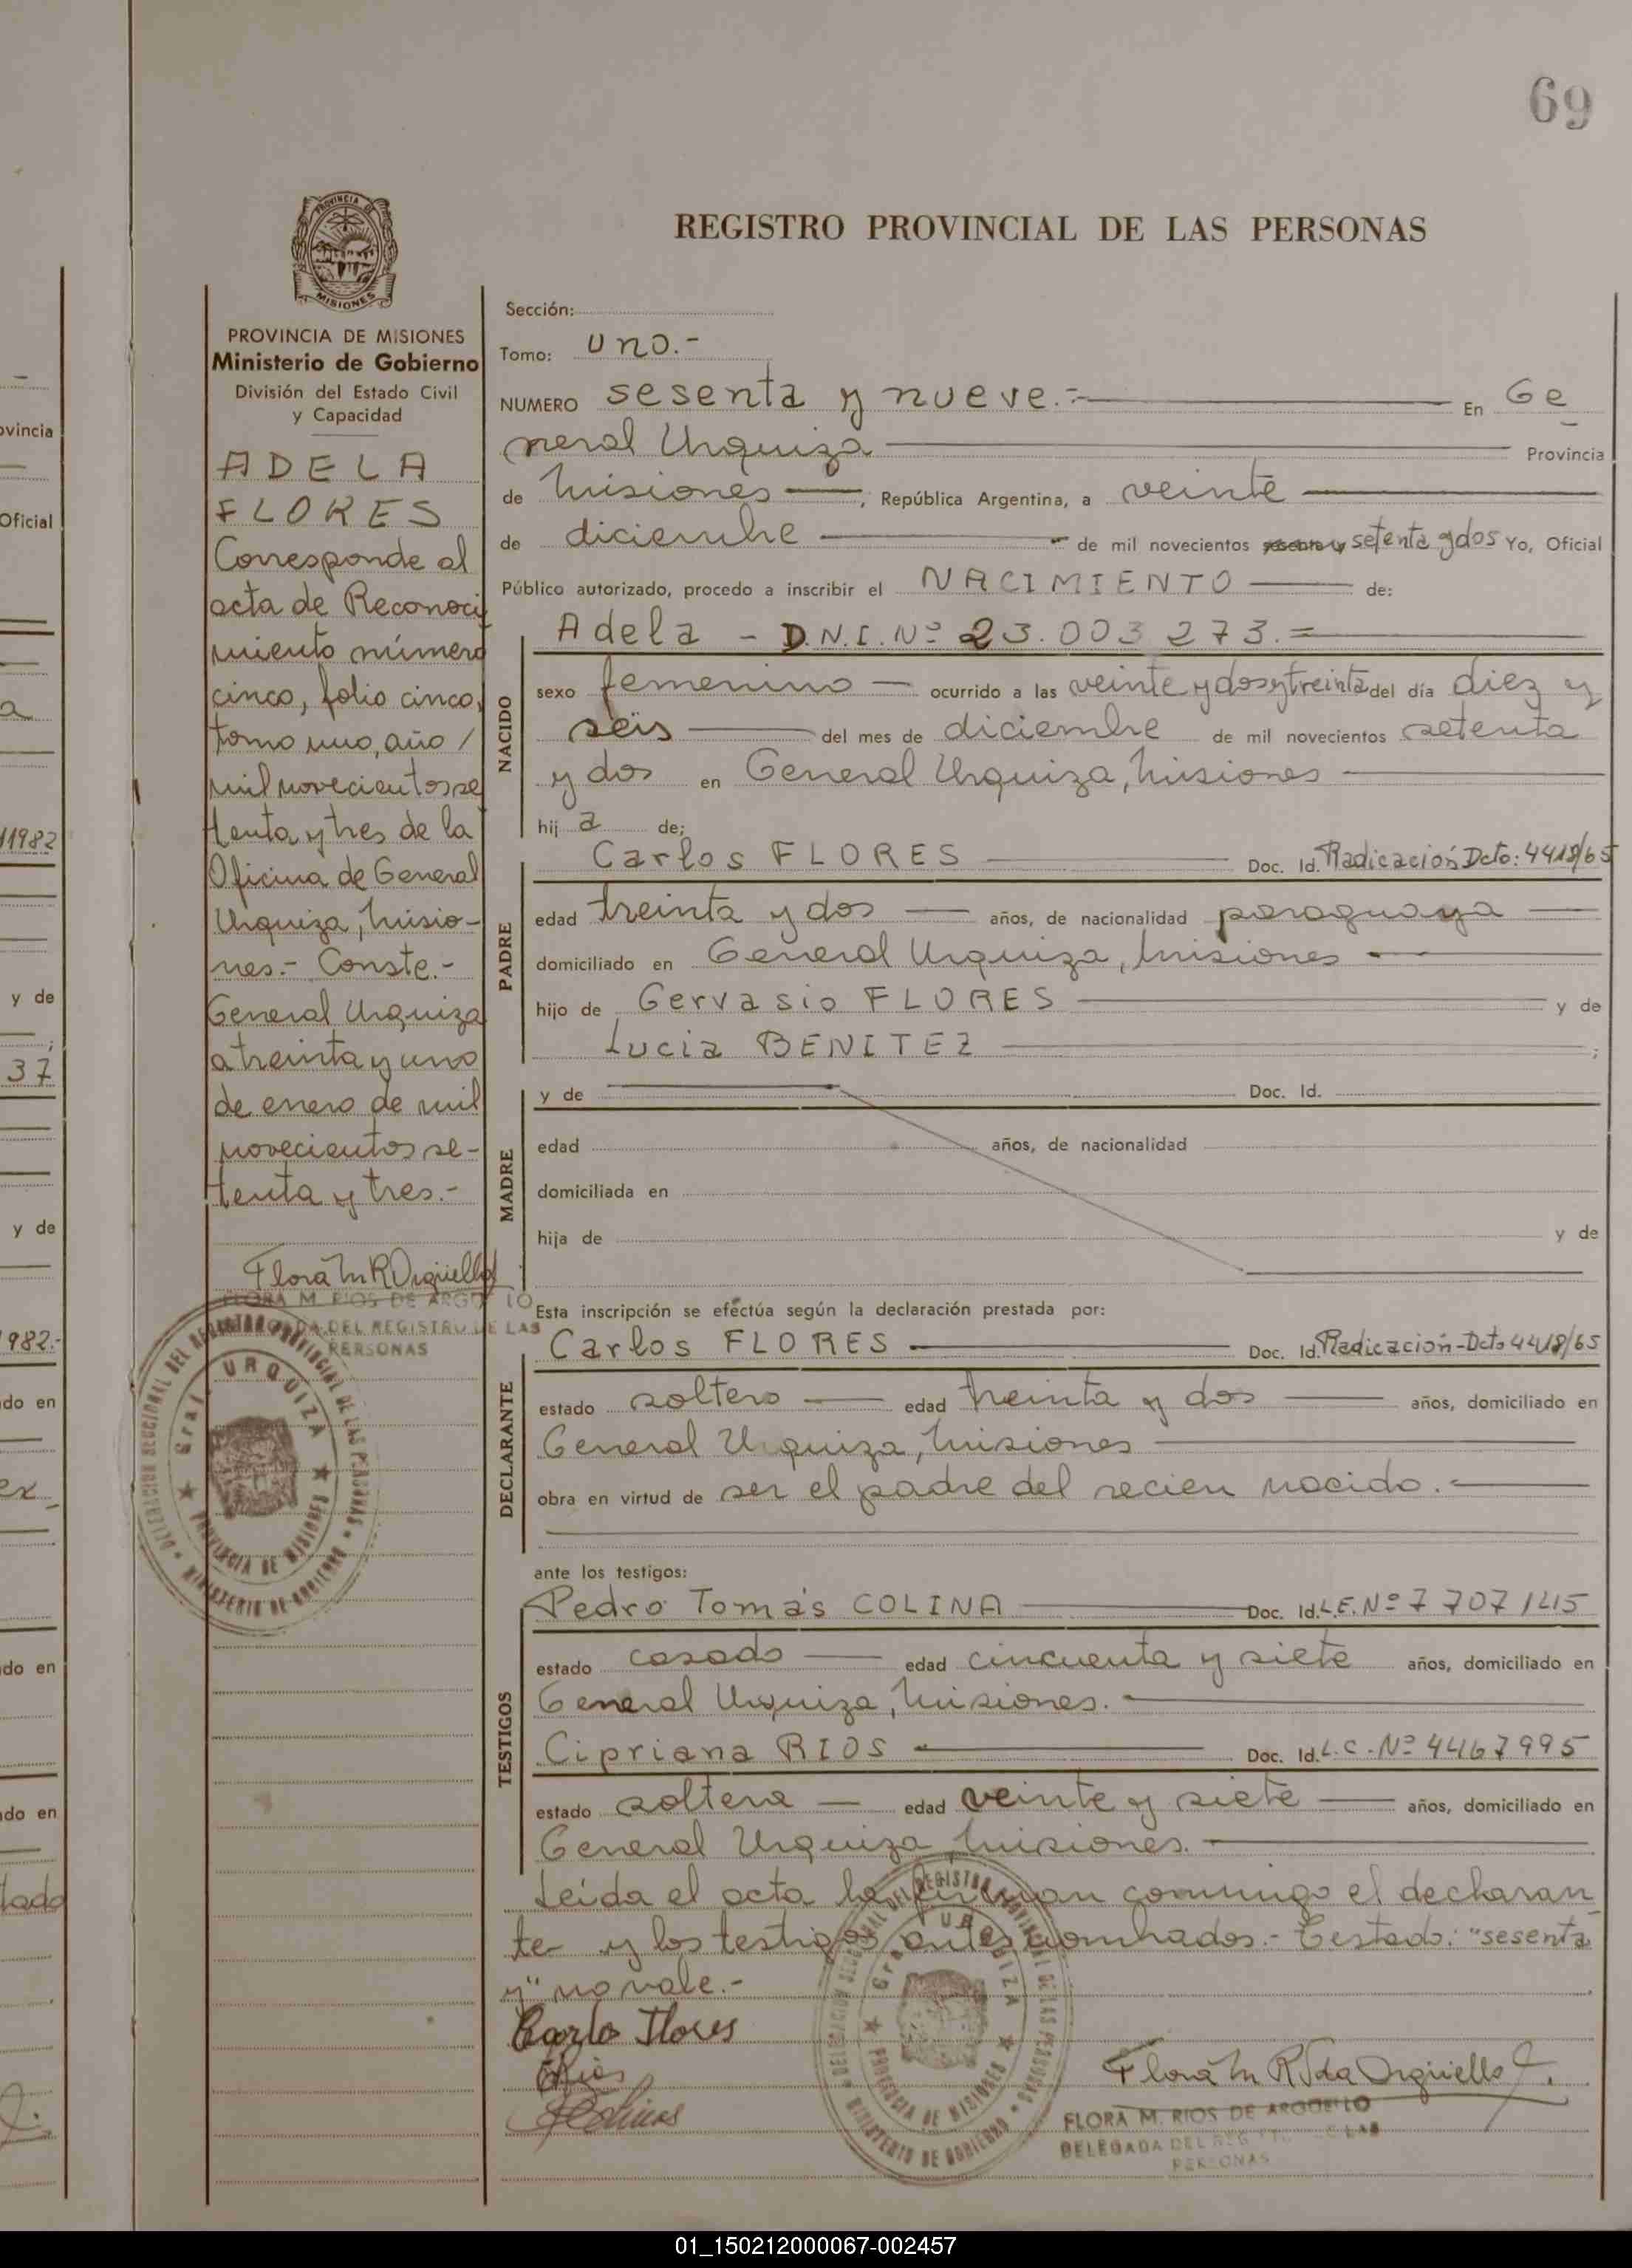 69
PROVINCIA DE
MISIONES
REGISTRO PROVINCIAL DE LAS PERSONAS
PROVINCIA DE MISIONES
Ministerio de Gobierno
División del Estado Civil
y Capacidad
ADELA
FLORES
Corresponde al
acta de Reconoci
miento número
cinco, folio cinco,
tomo uno, año /
mil novecientos se
tenta y tres de la
Oficina de General
Urquiza, Misio-
nes.- Conste.-
General Urquiza
a treinta y uno
de enero de mil
novecientos se-
tenta y tres.-
FLORA M. RIOS DE ARGO LO
DA DEL REGISTRO DE LAS
PERSONAS
DELEGACION SECCIONAL DEL REGISTRO PROVINCIAL DE LAS PERSONAS
Gral. URQUIZA
PROVINCIA DE MISIONES
MINISTERIO DE GOBIERNO
Sección:
Tomo: uno.-
NUMERO sesenta y nueve.- En Ge
neral Urquiza Provincia
de Misiones, República Argentina, a veinte
de diciembre de mil novecientos sesenta y setenta y dos Yo, Oficial
Público autorizado, procedo a inscribir el NACIMIENTO de:
Adela - D.N.I. Nº 23.003 273.=
NACIDO
sexo femenino ocurrido a las veinte y dos y treinta del día diez y
seis del mes de diciembre de mil novecientos setenta
y dos en General Urquiza, Misiones
hij a de;
Carlos FLORES Doc. Id. Radicación Dcto: 4418/65
PADRE
edad treinta y dos años, de nacionalidad paraguaya
domiciliado en General Urquiza, Misiones
hijo de Gervasio FLORES y de
Lucia BENITEZ ;
MADRE
y de Doc. Id.
edad años, de nacionalidad
domiciliada en
hija de y de
Esta inscripción se efectúa según la declaración prestada por:
Carlos FLORES Doc. Id. Radicación-Dcto 4418/65
DECLARANTE
estado soltero edad treinta y dos años, domiciliado en
General Urquiza, Misiones
obra en virtud de ser el padre del recien nacido.-
ante los testigos:
Pedro Tomás COLINA Doc. Id. L.E. Nº 7 707 145
TESTIGOS
estado casado edad cincuenta y siete años, domiciliado en
General Urquiza, Misiones.
Cipriana RIOS Doc. Id. L.C. Nº 4467995
estado soltera edad veinte y siete años, domiciliado en
General Urquiza, Misiones.
Leída el acta la firman conmigo el declaran
te y los testigos antes nombrados.- Testado: "sesenta
y" no vale.-
Carlo Flores
Rios
FLORA M. RIOS DE ARGUELLO
DELEGADA DEL REG LAS
PERSONAS
DELEGACION SECCIONAL DEL REGISTRO PROVINCIAL DE LAS PERSONAS
Gral. URQUIZA
PROVINCIA DE MISIONES
MINISTERIO DE GOBIERNO
ovincia
Oficial
a
1982
y de
37
y de
982.-
do en
do en
do en
tado
01_150212000067-002457